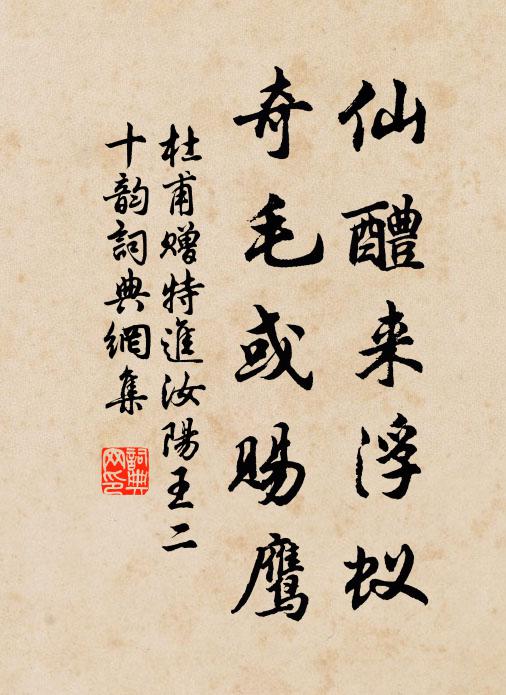 仙醴来浮蚁
奇毛或赐鹰
杜甫赠特進汝陽王二
十韵詞典網集
詞典
网印